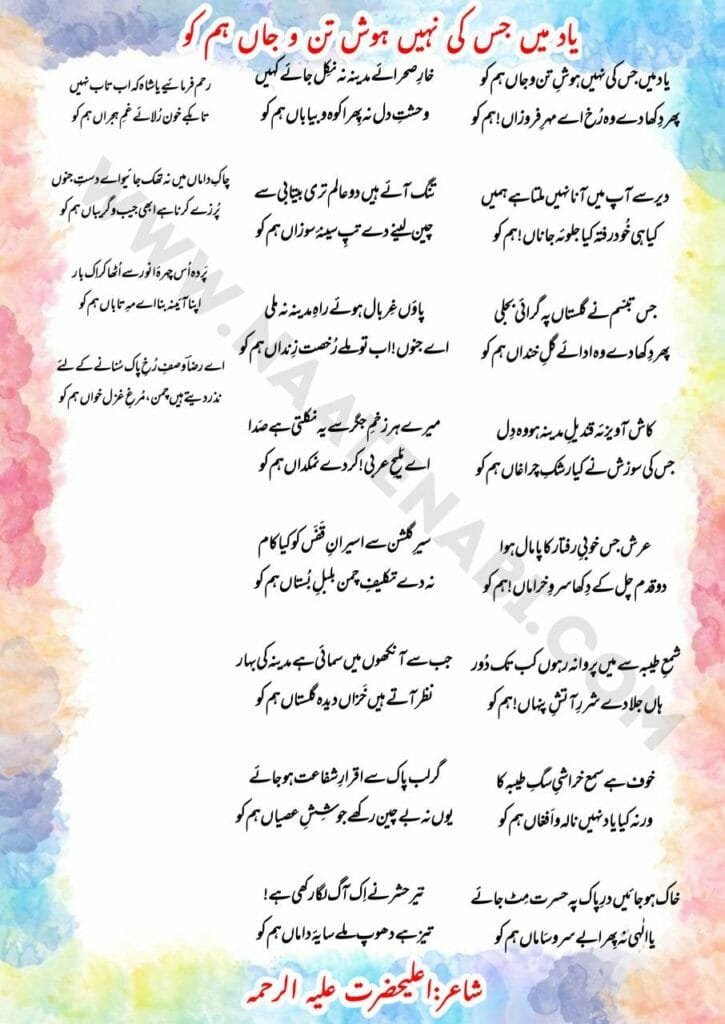 یاد میں جس کی نہیں ہوش تن و جاں ہم کو
یاد میں جس کی نہیں ہوشِ تن و جاں ہم کو
پھر دکھا دے وہ رُخ اے مہرِ فروزاں! ہم کو
دیر سے آپ میں آنا نہیں ملتا ہے ہمیں
کیا ہی خُود رفتہ کیا جلوۂ جاناں! ہم کو
جس تبسّم نے گلستاں پہ گرائی بجلی
پھر دکھا دے وہ ادائے گلِ خنداں ہم کو
کاش آویزۂ قندیلِ مدینہ ہو وہ دِل
جس کی سوزش نے کیا رشکِ چراغاں ہم کو
عرش جس خوبیِ رفتار کا پامال ہوا
دو قدم چل کے دِکھا سروِ خراماں! ہم کو
شمعِ طیبہ سے میں پروانہ رہوں کب تک دُور
ہاں جلا دے شررِ آتشِ پنہاں! ہم کو
خوف ہے سمع خراشیِ سگِ طیبہ کا
ورنہ کیا یاد نہیں نالہ و اَفغاں ہم کو
خاک ہو جائیں درِ پاک پہ حسرت مِٹ جائے
یا الٰہی نہ پھرا بے سر و سَاماں ہم کو
خارِ صحرائے مدینہ نہ نِکل جائے کہیں
وحشتِ دل نہ پِھرا کوہ و بیاباں ہم کو
تنگ آئے ہیں دو عالم تری بیتابی سے
چین لینے دے تپِ سینۂ سوزاں ہم کو
پاؤں غِربال ہوئے راہِ مدینہ نہ ملی
اے جنوں! اب تو ملے رُخصتِ زِنداں ہم کو
میرے ہر زخمِ جگر سے یہ نکلتی ہے صَدا
اے ملیحِ عربی! کر دے نمکداں ہم کو
سیرِ گلشن سے اسیرانِ قَفَس کو کیا کام
نہ دے تکلیفِ چمن بلبلِ بُستاں ہم کو
جب سے آنکھوں میں سمائی ہے مدینہ کی بہار
نظر آتے ہیں خَزَاں دیدہ گلستاں ہم کو
گر لب پاک سے اقرارِ شفاعت ہو جائے
یوں نہ بے چین رکھے جوشِشِ عصیاں ہم کو
نیّرِ حشر نے اِک آگ لگا رکھی ہے!
تیز ہے دھوپ ملے سایۂ داماں ہم کو
رحم فرمائیے یا شاہ کہ اب تاب نہیں
تا بکے خون رُلائے غمِ ہجراں ہم کو
چاکِ داماں میں نہ تھک جائیو اے دستِ جنوں
پُرزے کرنا ہے ابھی جیب و گریباں ہم کو
پَردہ اُس چہرۂ انور سے اُٹھا کر اک بار
اپنا آئینہ بنا اے مہِ تاباں ہم کو
اے رضاؔ وصفِ رُخِ پاک سُنانے کے لئے
نذر دیتے ہیں چمن، مُرغِ غزل خواں ہم کو
شاعر:اعلیحضرت علیہ الرحمہ
WWW.NAATENABI.COM